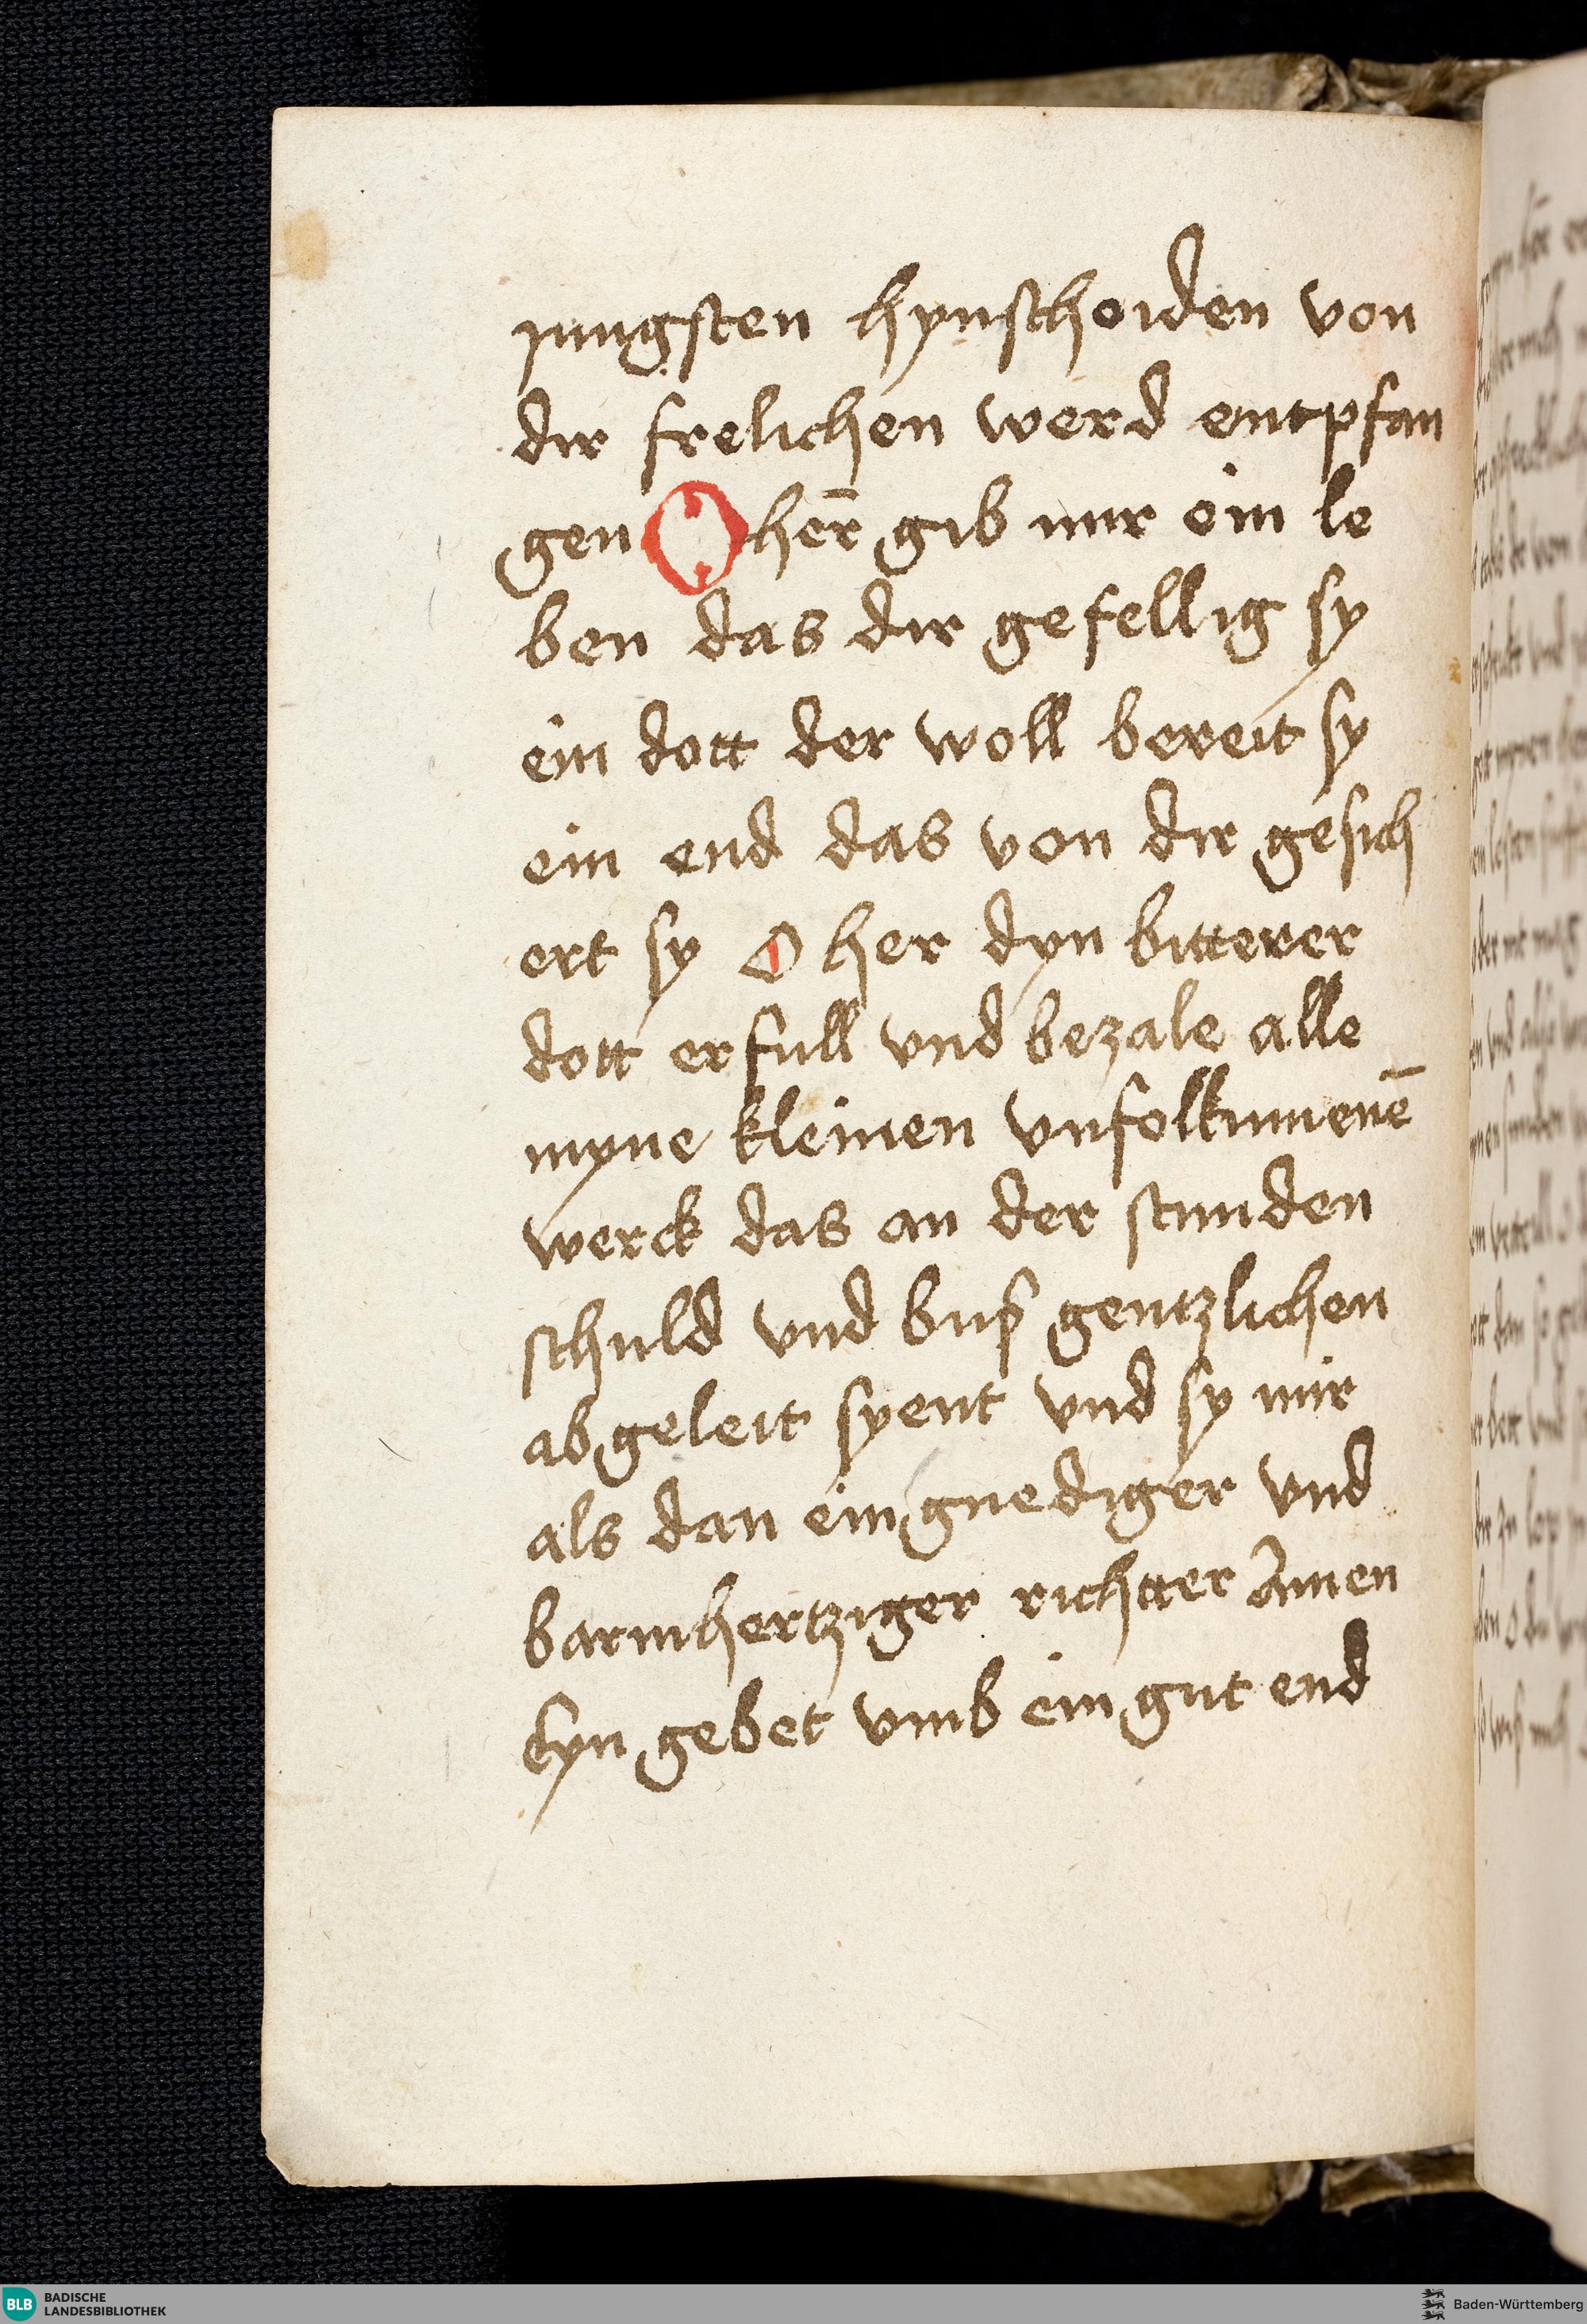 jungsten hynscheiden von
dir frelichen werd entpfan
gen O her̄ gib mir ein le
ben das dir gefellig sy
ein dott der woll bereit sy
ein end das von dir gesich
ert sy O her dyn bitterer
dott erfull vnd bezale alle
myne kleinen vnfolkumenē
werck das an der stunden
schuld vnd buß gentzlichen
abgeleit syent vnd sy mir
als dan ein gnediger vnd
barmhertziger richtter Amen
Eyn gebet vmb ein gut end
BLB BADISCHE
LANDESBIBLIOTHEK
Baden-Württemberg